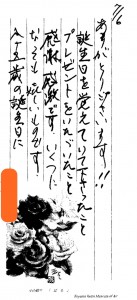 7/6
ありがとうございます!!
誕生日を覚えていて下さったこと
プレゼントをいただいたこと
感謝感激です。いくつに
なっても嬉しいものです!
五歳の誕生日に